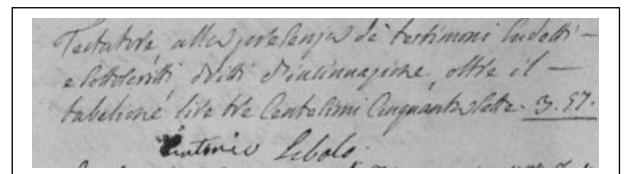 Testatore, alla presenza de' testimoni sudetti
e sottoscritti, dritti d'insinuazione, oltre il
tabelione lire tre Centesimi Cinquanta sette. 3. 57.
Antonio Lebolo.